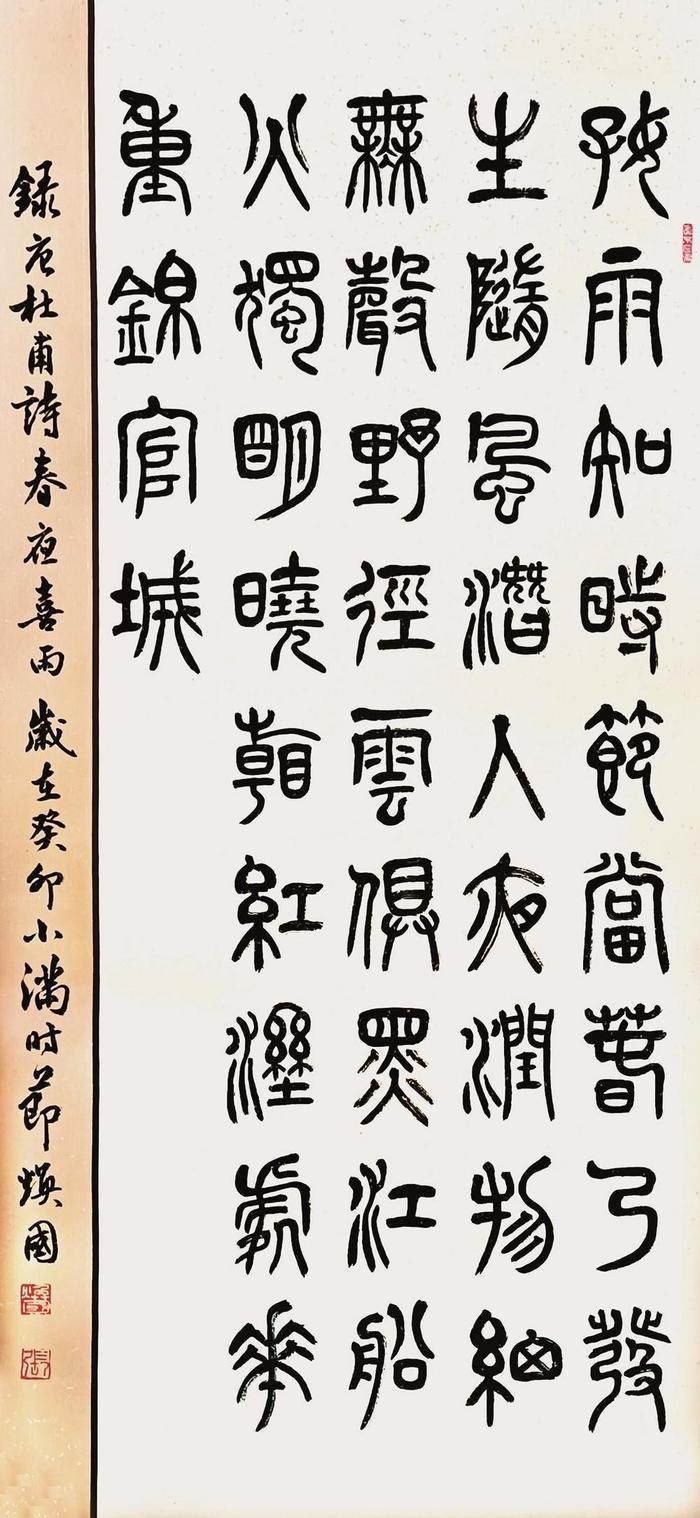 好雨知時節當春乃發
生隨風潛入夜潤物細
無聲野徑雲俱黑江船
火獨明曉看紅濕處花
重錦官城
錄唐杜甫詩春夜喜雨 歲在癸卯小滿时節煥國
張